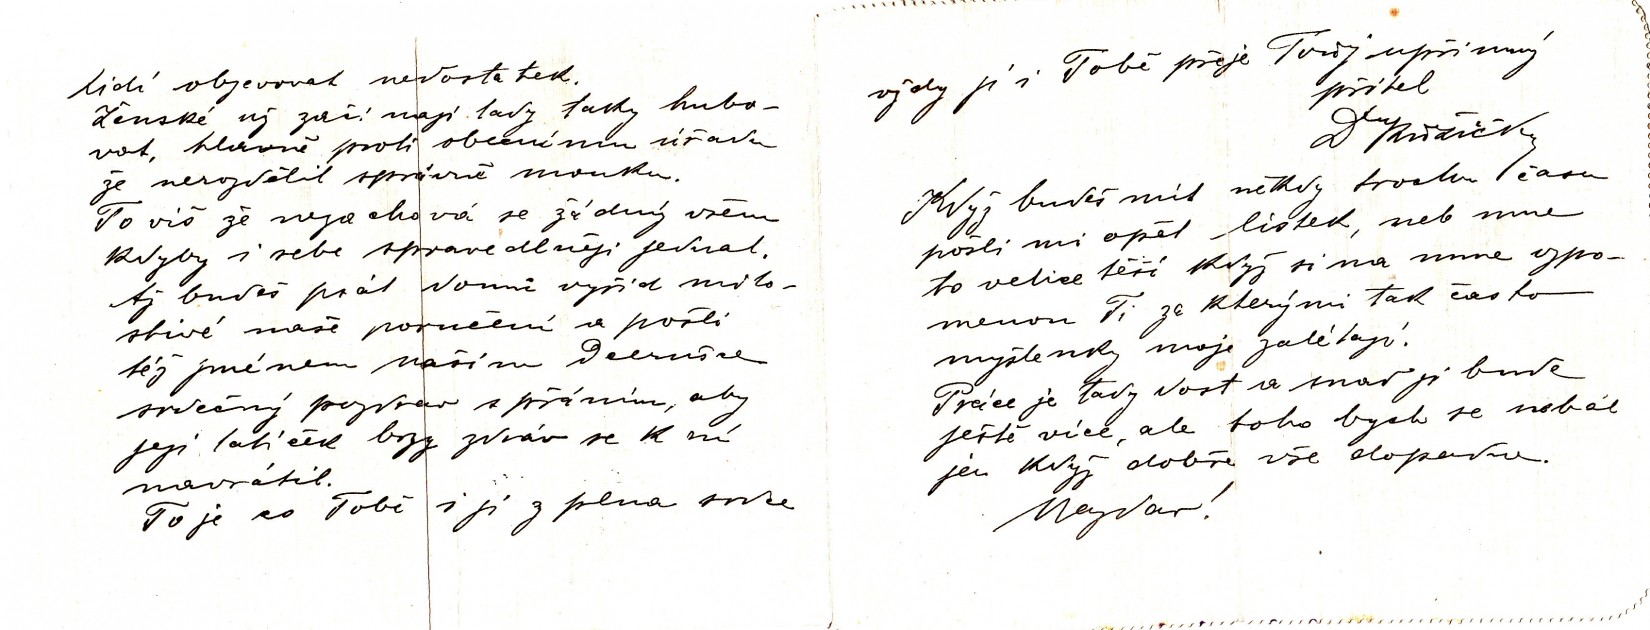 lidí objevovat nedostatek.
Ženské už začínají tady taky hubo-
vat, hlavně proti obecnímu úřadu
že nerozdělil správně mouku.
To víš že nezachová se žádný všem
kdyby i sebe spravedlněji jednal.
Až budeš psát domů vyřiď milo-
stivé naše poručení a pošli
též jménem naším Dcerušce
srdečný pozdrav s přáním, aby
její tatíček brzy zdráv se k ní
navrátil.
To je co Tobě i jí z plna srdce
vždy jí i Tobě přeje Tvůj upřímný
přítel
Růžička
Když budeš mít někdy trochu času
pošli mi opět lístek, neb mne
to velice těší když si na mne vzpo-
menou Ti za kterými tak často
myšlenky moje zalétají.
Práce je tady dost a snad jí bude
ještě více, ale toho bych se nebál
jen když dobře vše dopadne.
Nazdar!